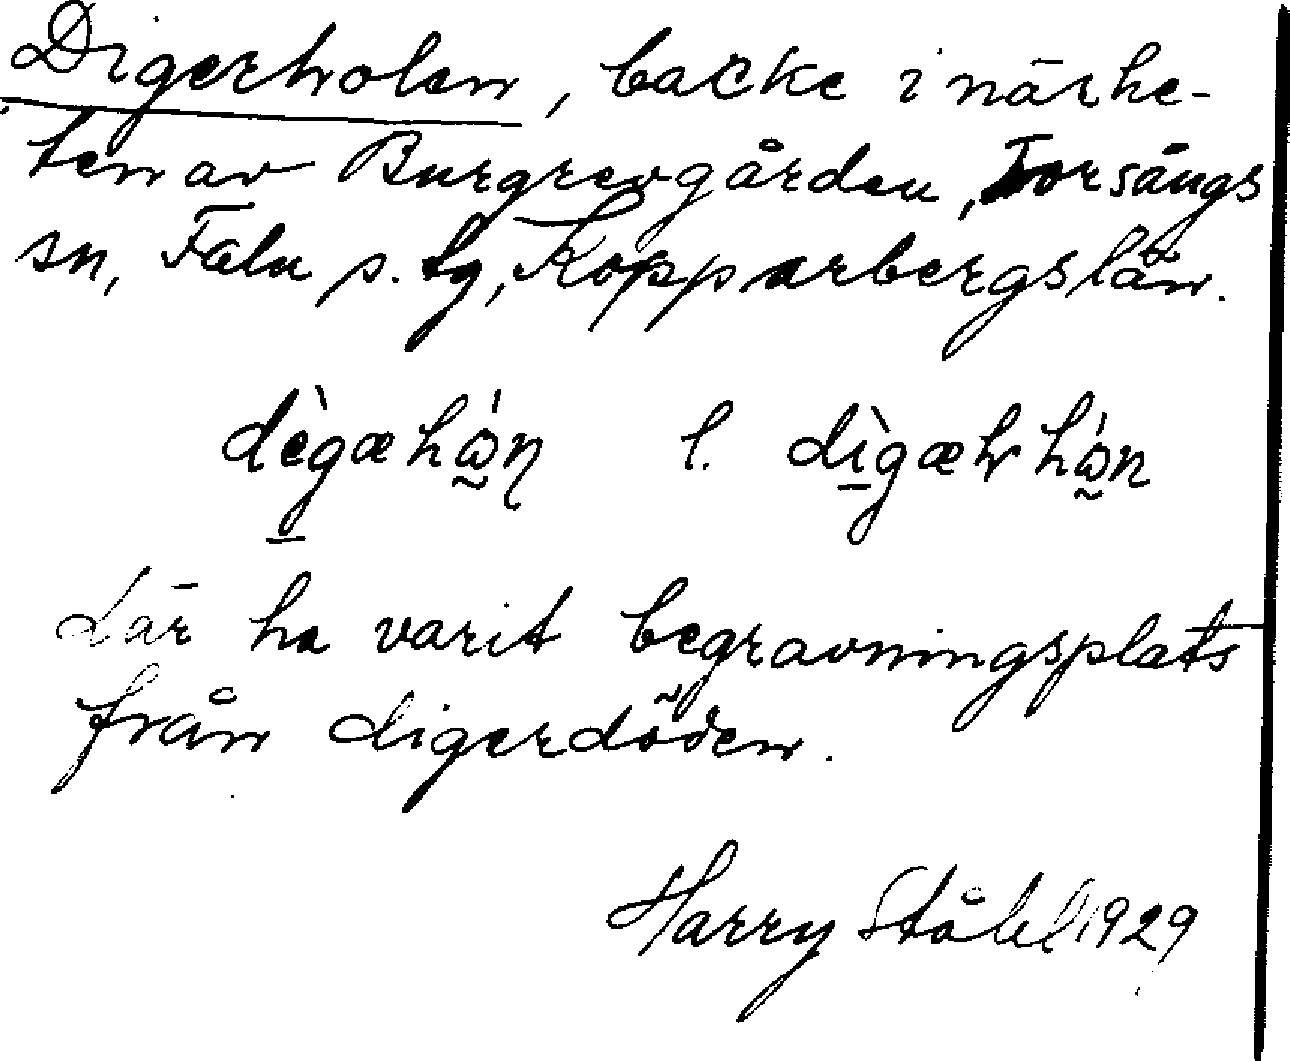 Digerholen, backe i närhe-
ten av Burgrevgården, Torsångs
sn, Falu s. tg, Kopparbergs län.
l.
Lär ha varit begravningsplats
från digerdöden.
Harry Ståhl 1929